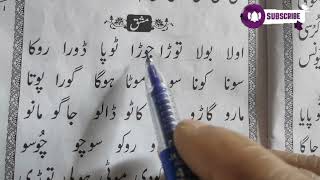 SUBSCRIBE
مشق
اولا بولا توڑا جوڑا ٹوپا ڈورا روکا
سونا کونا سو موٹا ہوگا گورا پوتا
مارو گاڑو کاٹو ڈالو جاگو مانو
رو روکو سوچو چُوسو
موٹی ہولی توڑی